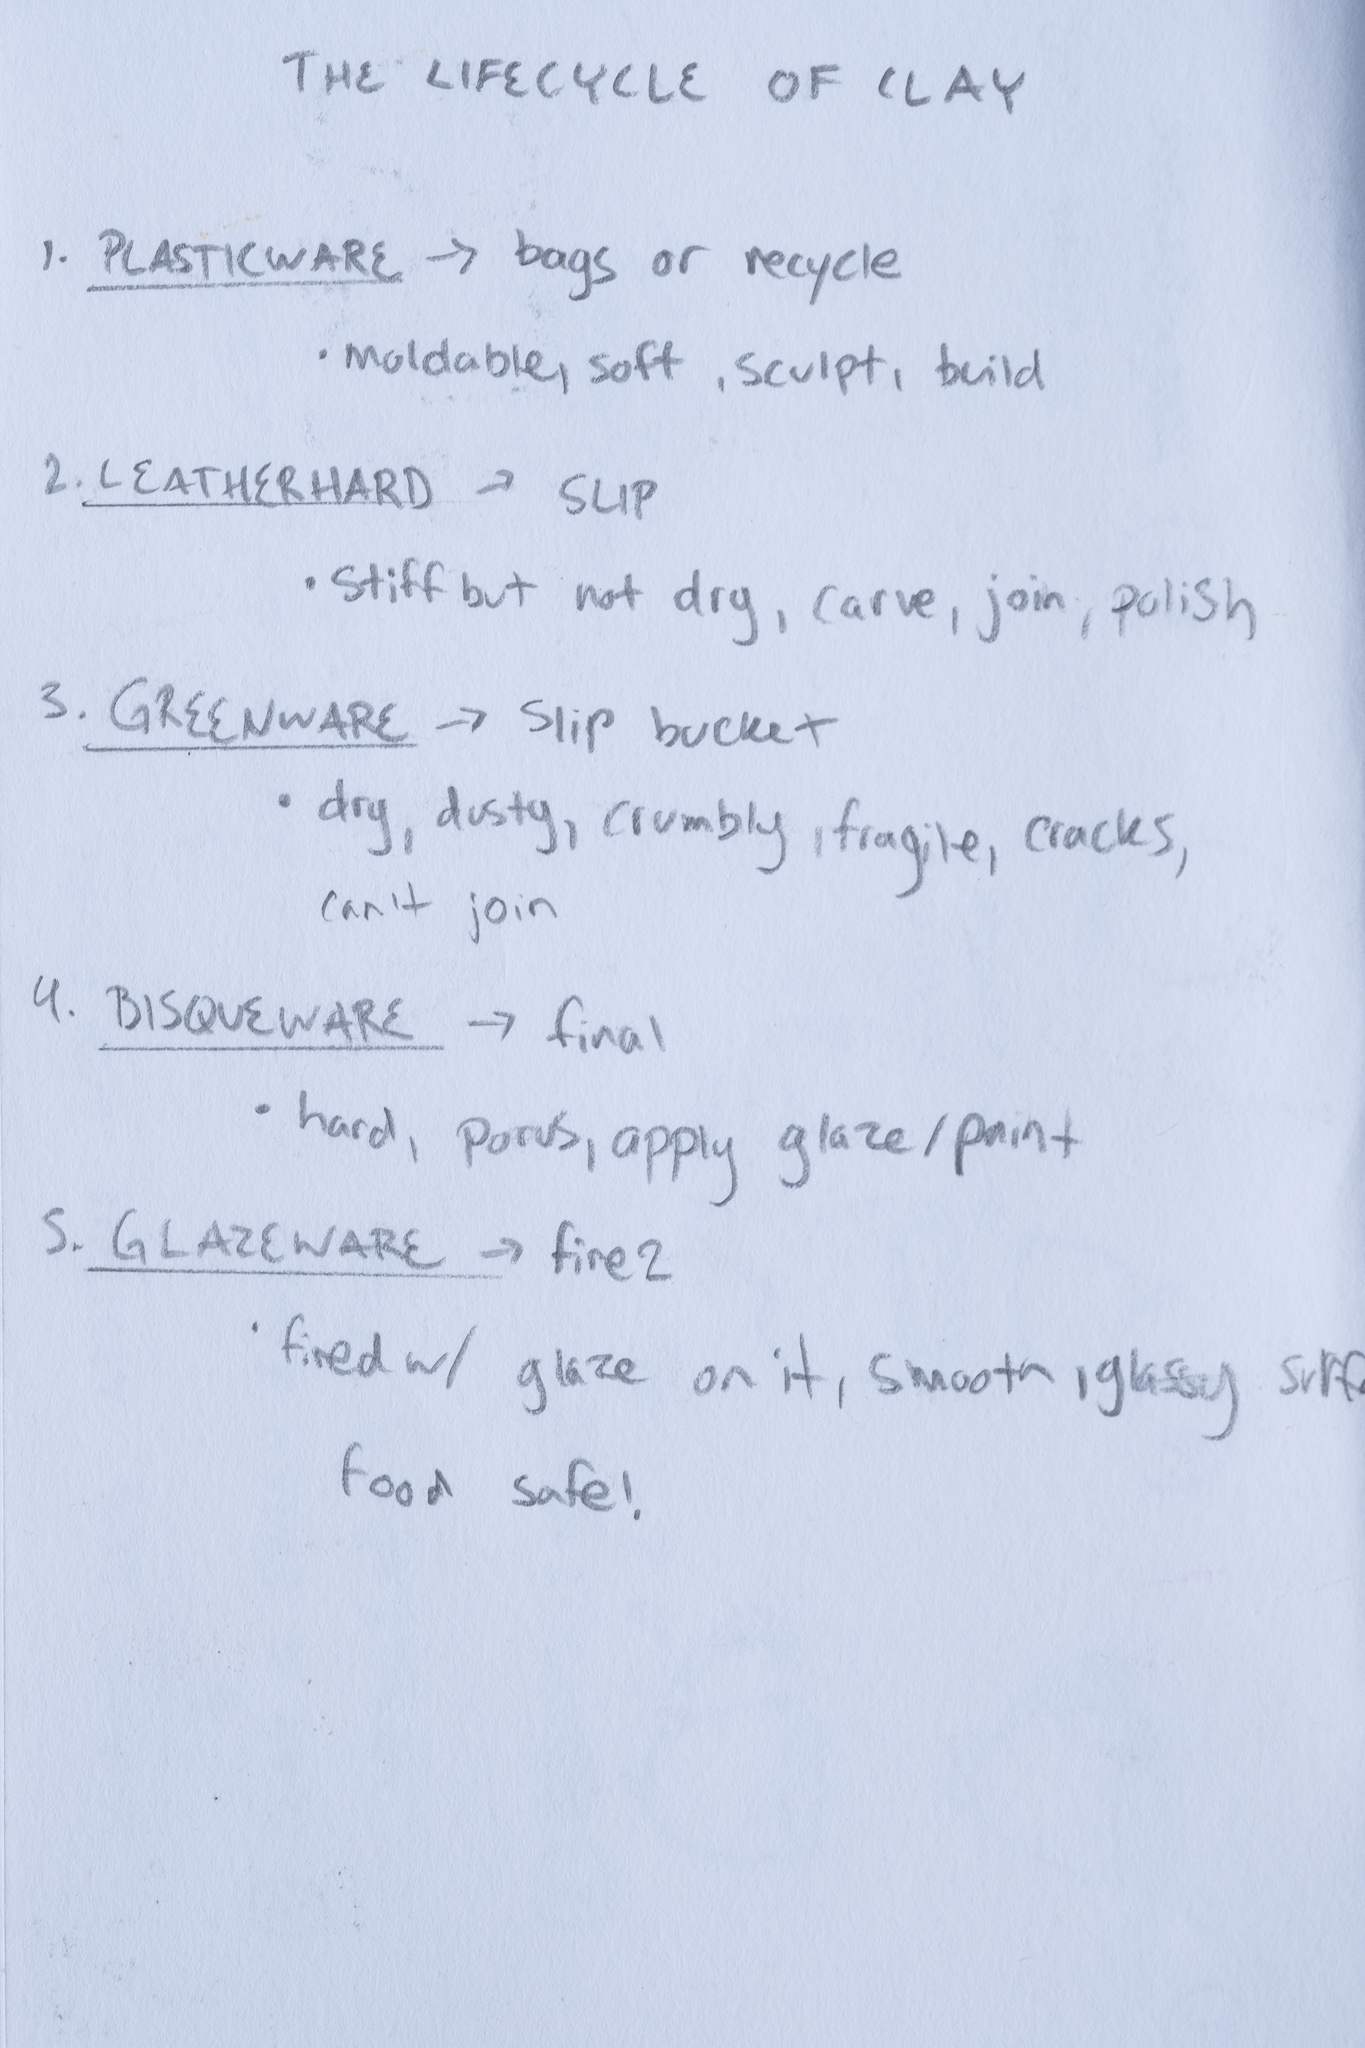 THE LIFECYCLE OF CLAY
1. PLASTICWARE → bags or recycle
• moldable, soft, sculpt, build
2. LEATHERHARD → SLIP
• stiff but not dry, carve, join, polish
3. GREENWARE → slip bucket
• dry, dusty, crumbly, fragile, cracks,
can't join
4. BISQUEWARE → final
• hard, porus, apply glaze/paint
5. GLAZEWARE → fire 2
• fired w/ glaze on it, smooth, glassy surfa
food safe!